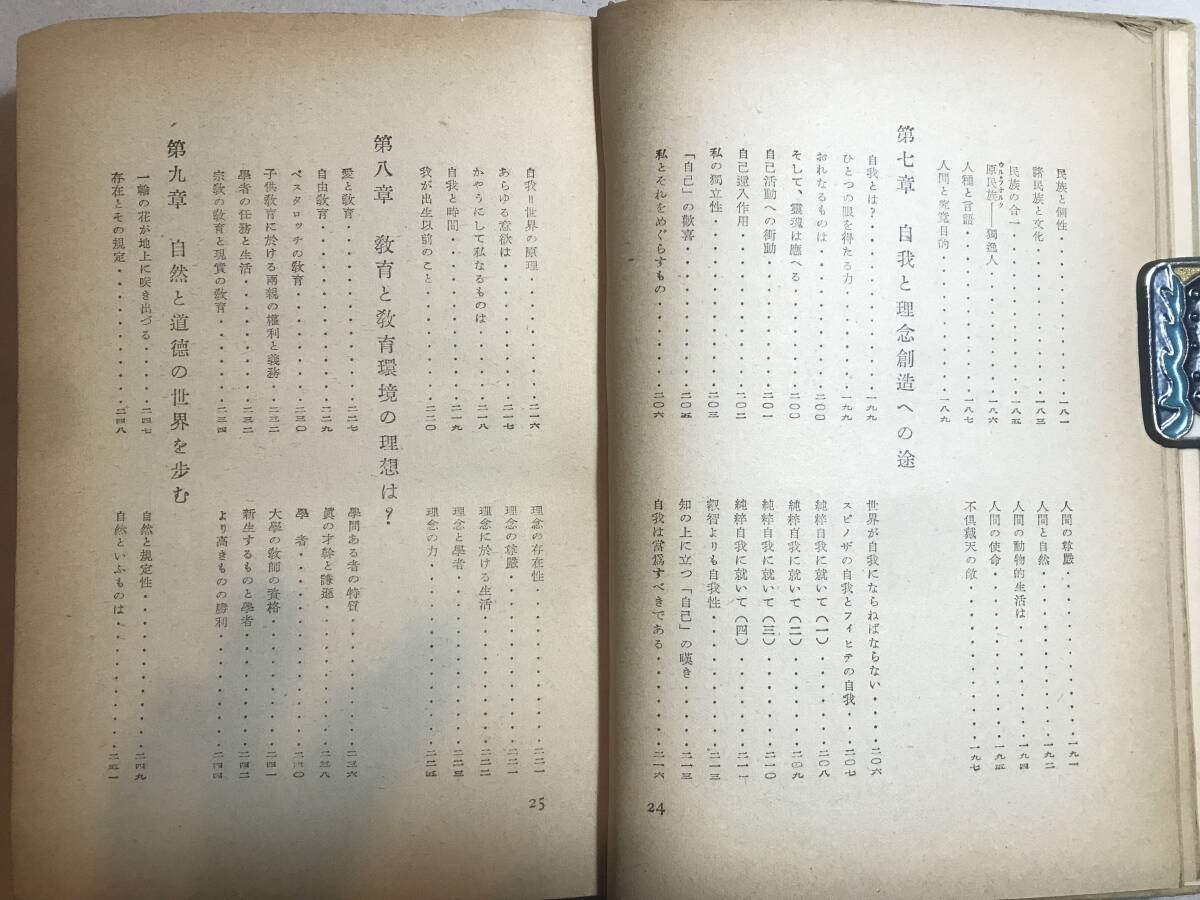 民族と個性・・・・・・・・・・・一八一
諸民族と文化・・・・・・・・・・一八三
民族の合一・・・・・・・・・・・一八五
原民族――獨逸人・・・・・・・・一八六
人種と言語・・・・・・・・・・・一八七
人間と究竟目的・・・・・・・・・一八九
人間の尊嚴・・・・・・・・・・・一九一
人間と自然・・・・・・・・・・・一九二
人間の動物的生活は・・・・・・・一九四
人間の使命・・・・・・・・・・・一九五
不倶戴天の敵・・・・・・・・・・一九七
第七章 自我と理念創造への途
自我とは?・・・・・・・・・・・一九九
ひとつの眼を得たる力・・・・・・一九九
おれなるものは・・・・・・・・・二〇〇
そして、靈魂は應へる・・・・・・二〇〇
自己活動への衝動・・・・・・・・二〇一
自己還入作用・・・・・・・・・・二〇二
私の獨立性・・・・・・・・・・・二〇三
「自己」の歡喜・・・・・・・・・二〇五
私とそれをめぐらすもの・・・・・二〇六
世界が自我にならねばならない・・二〇六
スピノザの自我とフィヒテの自我・・二〇七
純粹自我に就いて(一)・・・・・二〇八
純粹自我に就いて(二)・・・・・二〇九
純粹自我に就いて(三)・・・・・二一〇
純粹自我に就いて(四)・・・・・二一一
叡智よりも自我性・・・・・・・・二一三
知の上に立つ「自己」の嘆き・・・二一三
自我は當爲すべきである・・・・・二一六
24
自我=世界の原理・・・・・・・・二一六
あらゆる意欲は・・・・・・・・・二一七
かやうにして私なるものは・・・・二一八
自我と時間・・・・・・・・・・・二一九
我が出生以前のこと・・・・・・・二二〇
理念の存在性・・・・・・・・・・二二一
理念の尊嚴・・・・・・・・・・・二二一
理念に於ける生活・・・・・・・・二二二
理念と學者・・・・・・・・・・・二二三
理念の力・・・・・・・・・・・・二二五
第八章 教育と教育環境の理想は?
愛と教育・・・・・・・・・・・・二二七
自由教育・・・・・・・・・・・・二二九
ペスタロッチの教育・・・・・・・二三〇
子供教育に於ける兩親の權利と義務・・二三二
學者の任務と生活・・・・・・・・二三二
宗教の教育と現實の教育・・・・・二三四
學問ある者の特質・・・・・・・・二三六
眞の才幹と謙遜・・・・・・・・・二三八
學者・・・・・・・・・・・・・・二四〇
大學の教師の資格・・・・・・・・二四一
新生するものと學者・・・・・・・二四二
より高きものの勝利・・・・・・・二四四
第九章 自然と道德の世界を歩む
一輪の花が地上に咲き出づる・・・二四七
存在とその規定・・・・・・・・・二四八
自然と規定性・・・・・・・・・・二四九
自然といふものは・・・・・・・・二五一
25